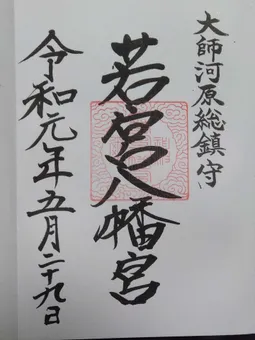 大師河原総鎮守
若宮八幡宮
令和元年五月二十九日